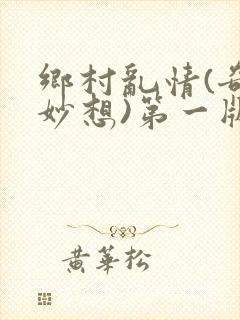 鄉村亂情(奇
妙想)第一版
黃華松